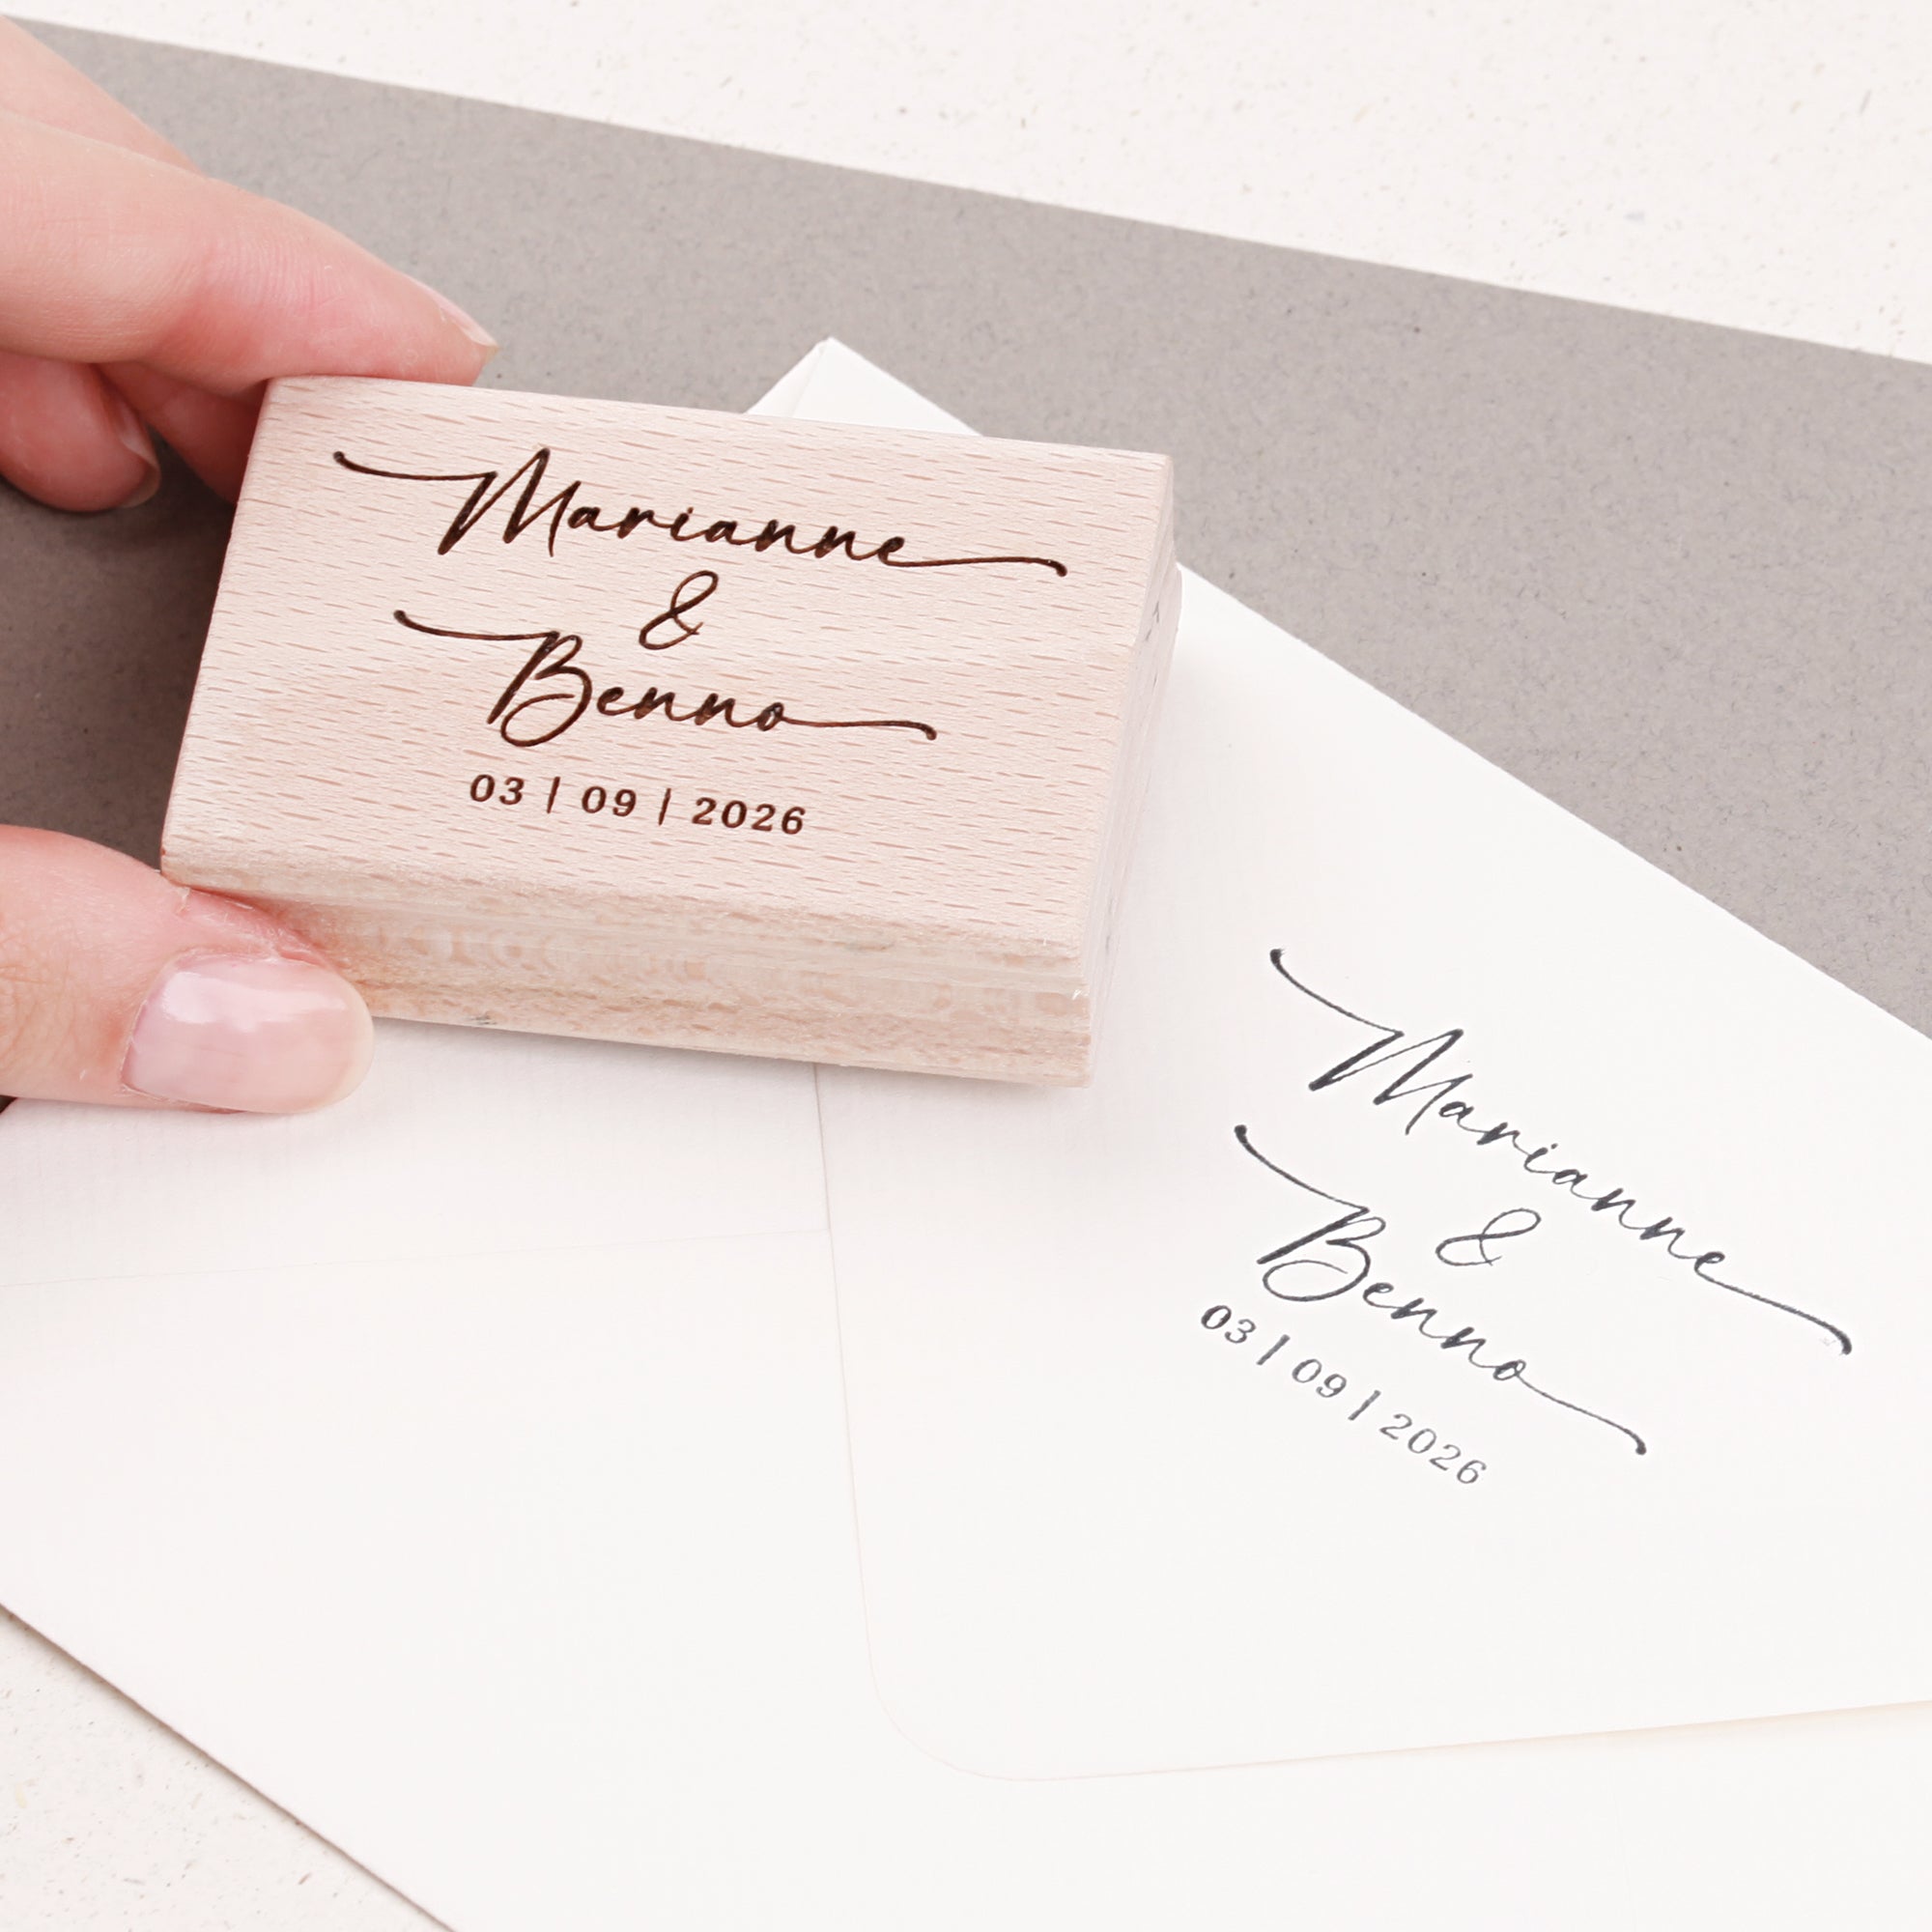 Marianne
&
Benno
03 | 09 | 2026
Marianne
&
Benno
03 | 09 | 2026